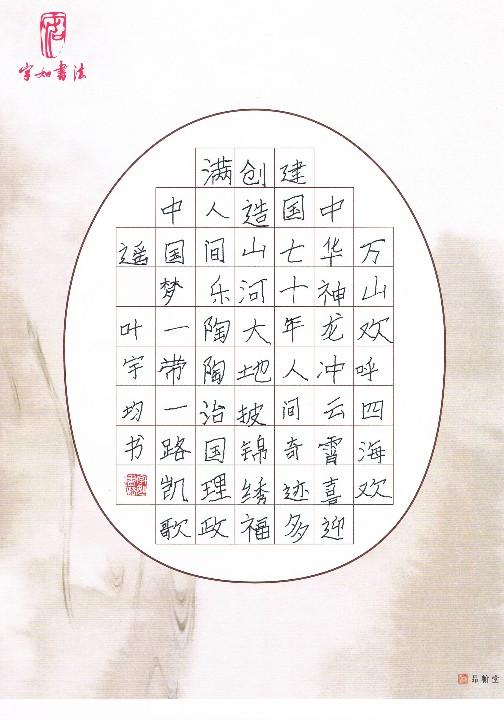 字如書法
万山欢呼四海欢
中华神龙冲云霄喜迎
建国七十年人间奇迹多
创造山河大地披锦绣福
满人间乐陶陶治国理政
中国梦一带一路凯歌
遥 叶宇均书
昂翰堂